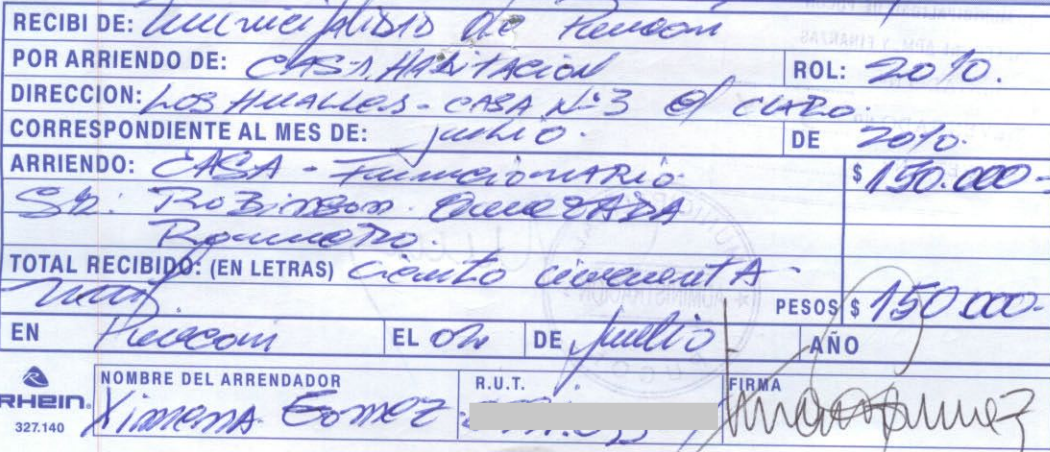 RECIBI DE: Municipalidad de Pucón
POR ARRIENDO DE: CASA HABITACIÓN ROL: 2010.
DIRECCION: LOS HUALLES - CASA Nº3 C/ CLARO.
CORRESPONDIENTE AL MES DE: Julio. DE 2010.
ARRIENDO: CASA - Funcionario $ 150.000-
Sr: Robinson
TOTAL RECIBIDO: (EN LETRAS) Ciento cincuenta -
mil PESOS $ 150.000-
EN Pucón EL 02 DE Julio AÑO
NOMBRE DEL ARRENDADOR R.U.T. FIRMA
RHEIN. Ximena Gomez
327.140